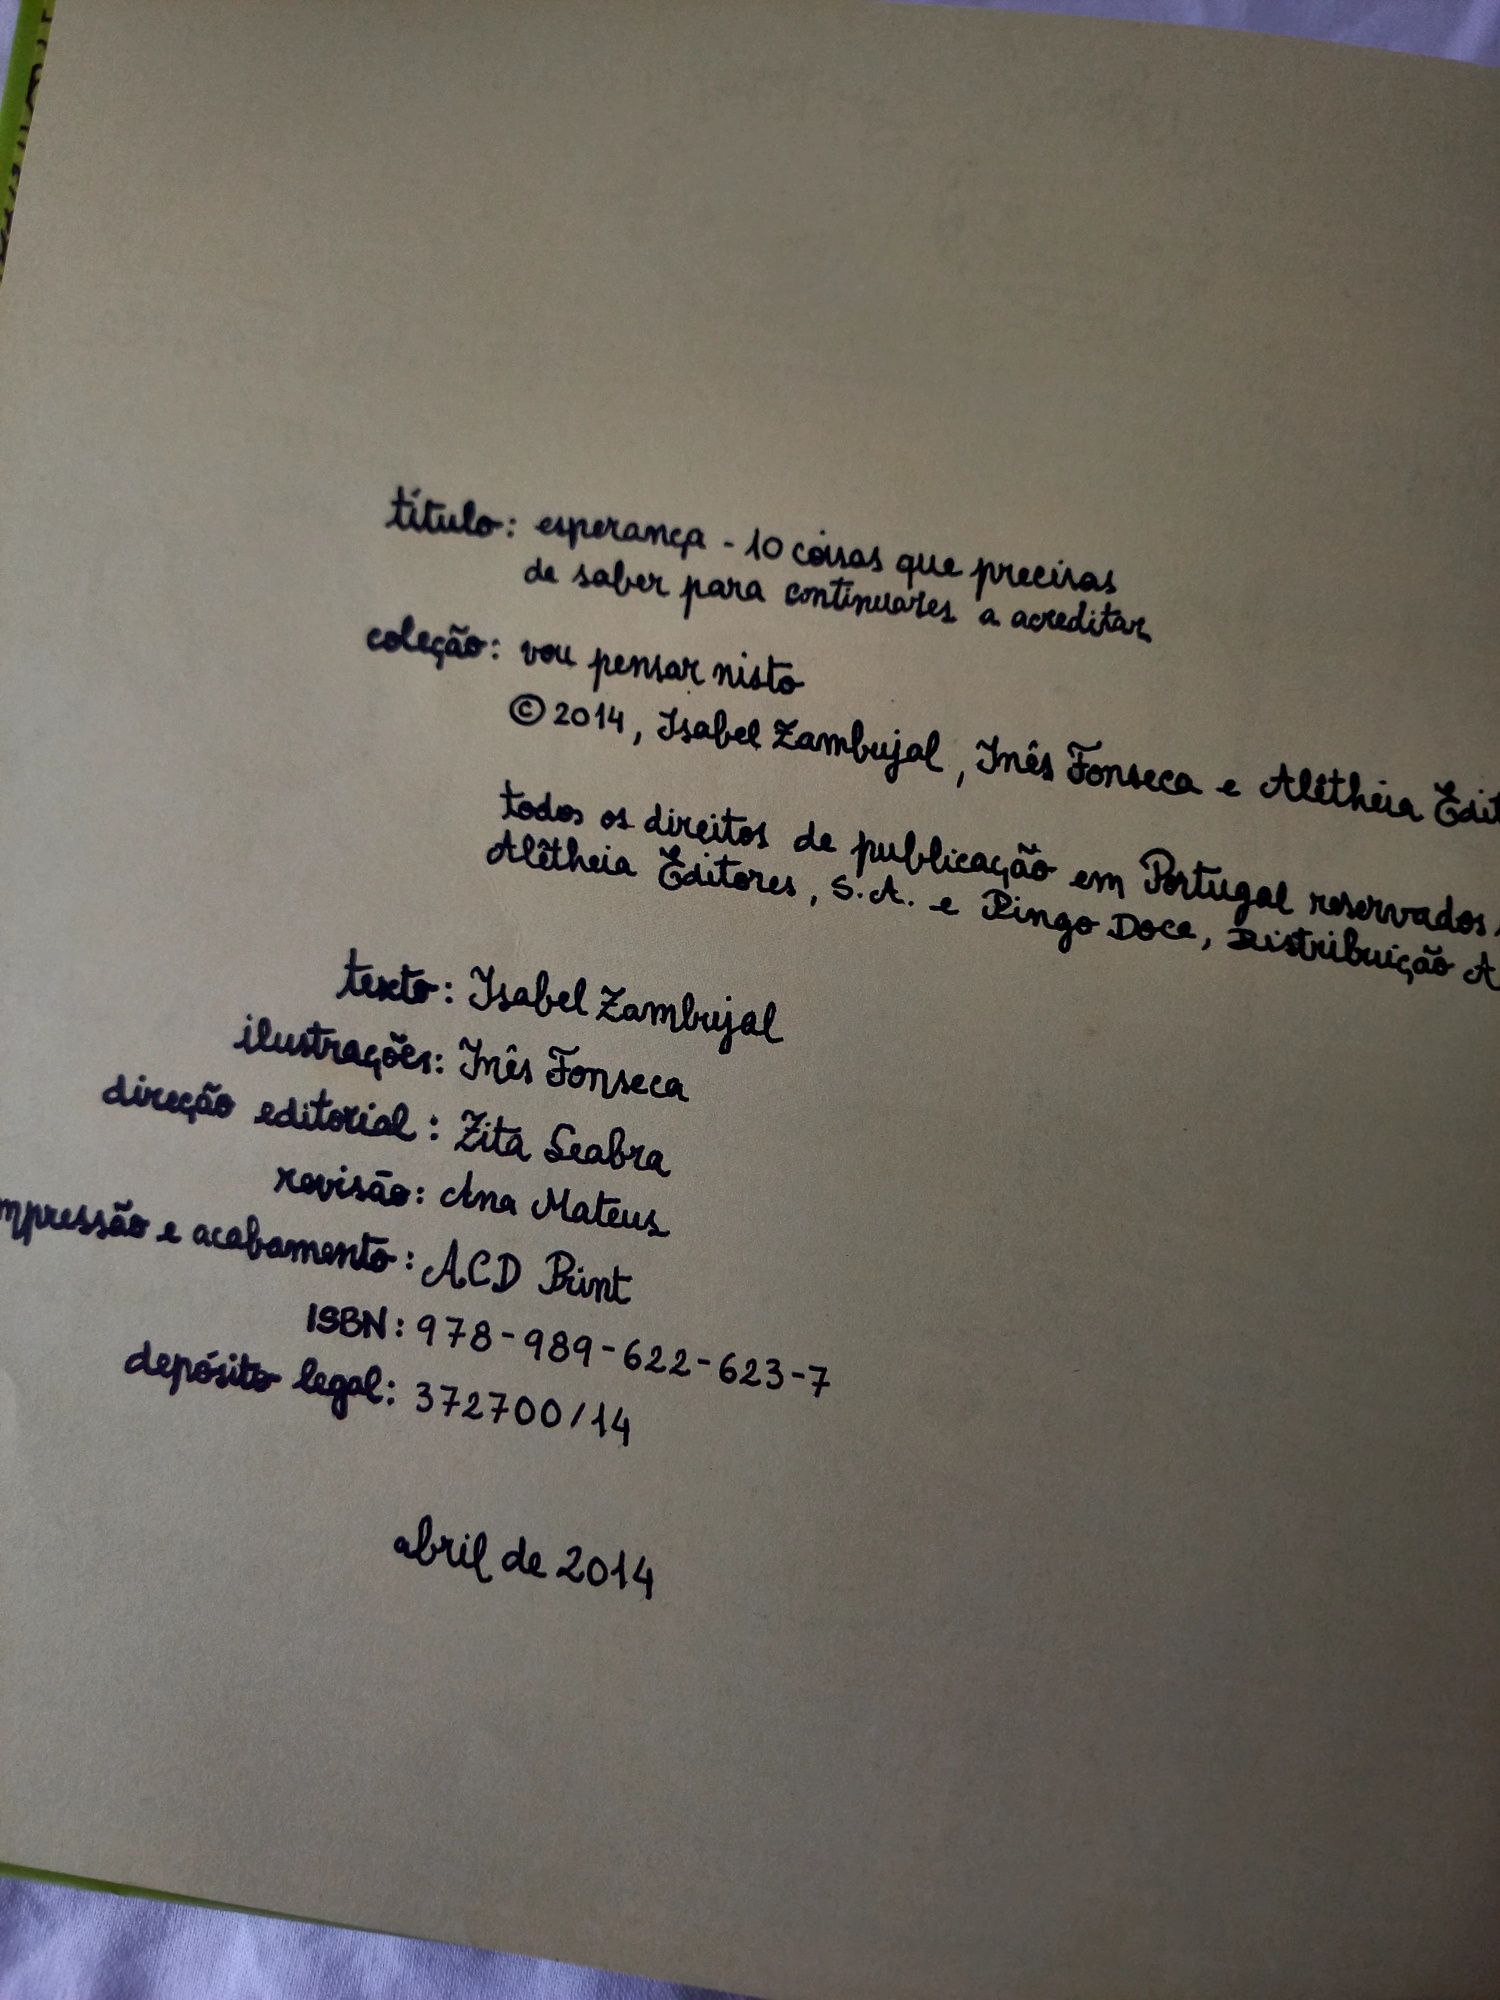 título: esperança - 10 coisas que precisas
de saber para continuares a acreditar
coleção: vou pensar nisto
© 2014, Isabel Zambujal, Inês Fonseca e Alêtheia Edit
todos os direitos de publicação em Portugal reservados
Alêtheia Editores, S.A. e Pingo Doce, Distribuição A
texto: Isabel Zambujal
ilustrações: Inês Fonseca
direção editorial: Zita Seabra
revisão: Ana Mateus
mpressão e acabamento: ACD Print
ISBN: 978-989-622-623-7
depósito legal: 372700/14
abril de 2014